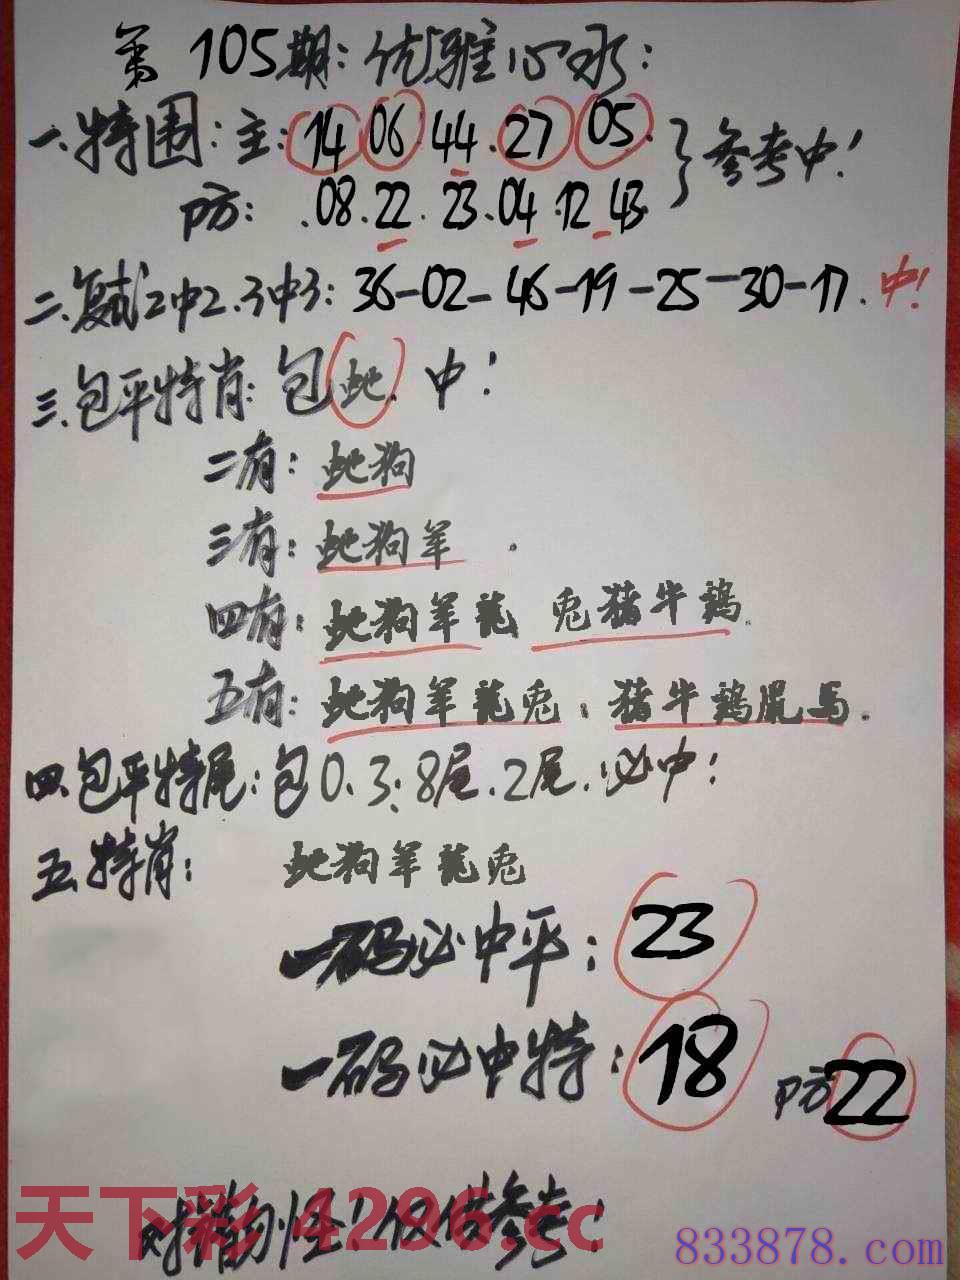 第105期:优雅心水:
一.特围:主:14 06 44.27 05.}参考中!
防:.08.22.23.04.12 43.
二.复试2中2.3中3:36-02-46-19-25-30-17.中!
三.包平特肖:包蛇.中!
二有:蛇狗
三有:蛇狗羊.
四有:蛇狗羊龍 兔猪牛鶏.
五有:蛇狗羊龍兔.猪牛鶏鼠馬.
四.包平特尾:包0.3.8尾.2尾.必中!
五.特肖:蛇狗羊龍兔
一码必中平:23
一码必中特:18 防22
天下彩 4296.cc
怪!仅供参考!
833878.com